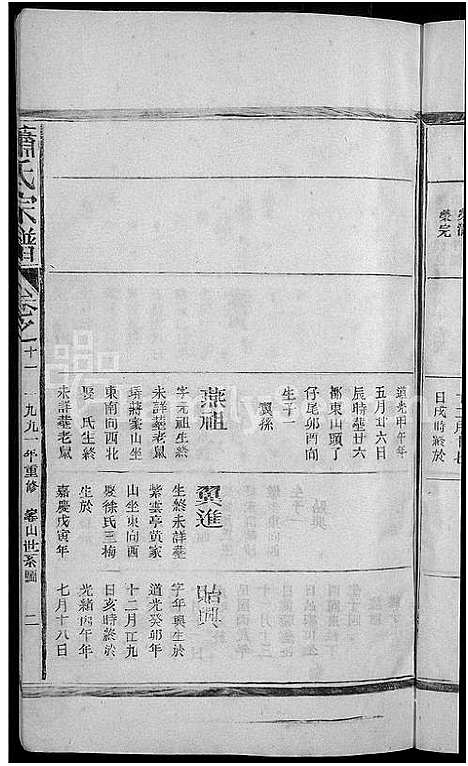 榮完
日戌時終於
道光甲午年
五月廿六日
辰時葬廿六
都東山頭了
仔尾卯酉向
生子一
翼孫
燕祖
字元祖生終
未詳葬老鼠
壙蔣家山坐
東南向西北
娶 氏生終
未詳葬老鼠
翼進
生終未詳葬
紫雲亭黃家
山坐東向西
娶徐氏三梅
生於
嘉慶戊寅年
貽興
字年興生於
道光癸卯年
十二月廿九
日亥時終於
光緒丙午年
七月十八日
蕭氏宗譜
卷之十一
一九九一年重修
世系圖
二